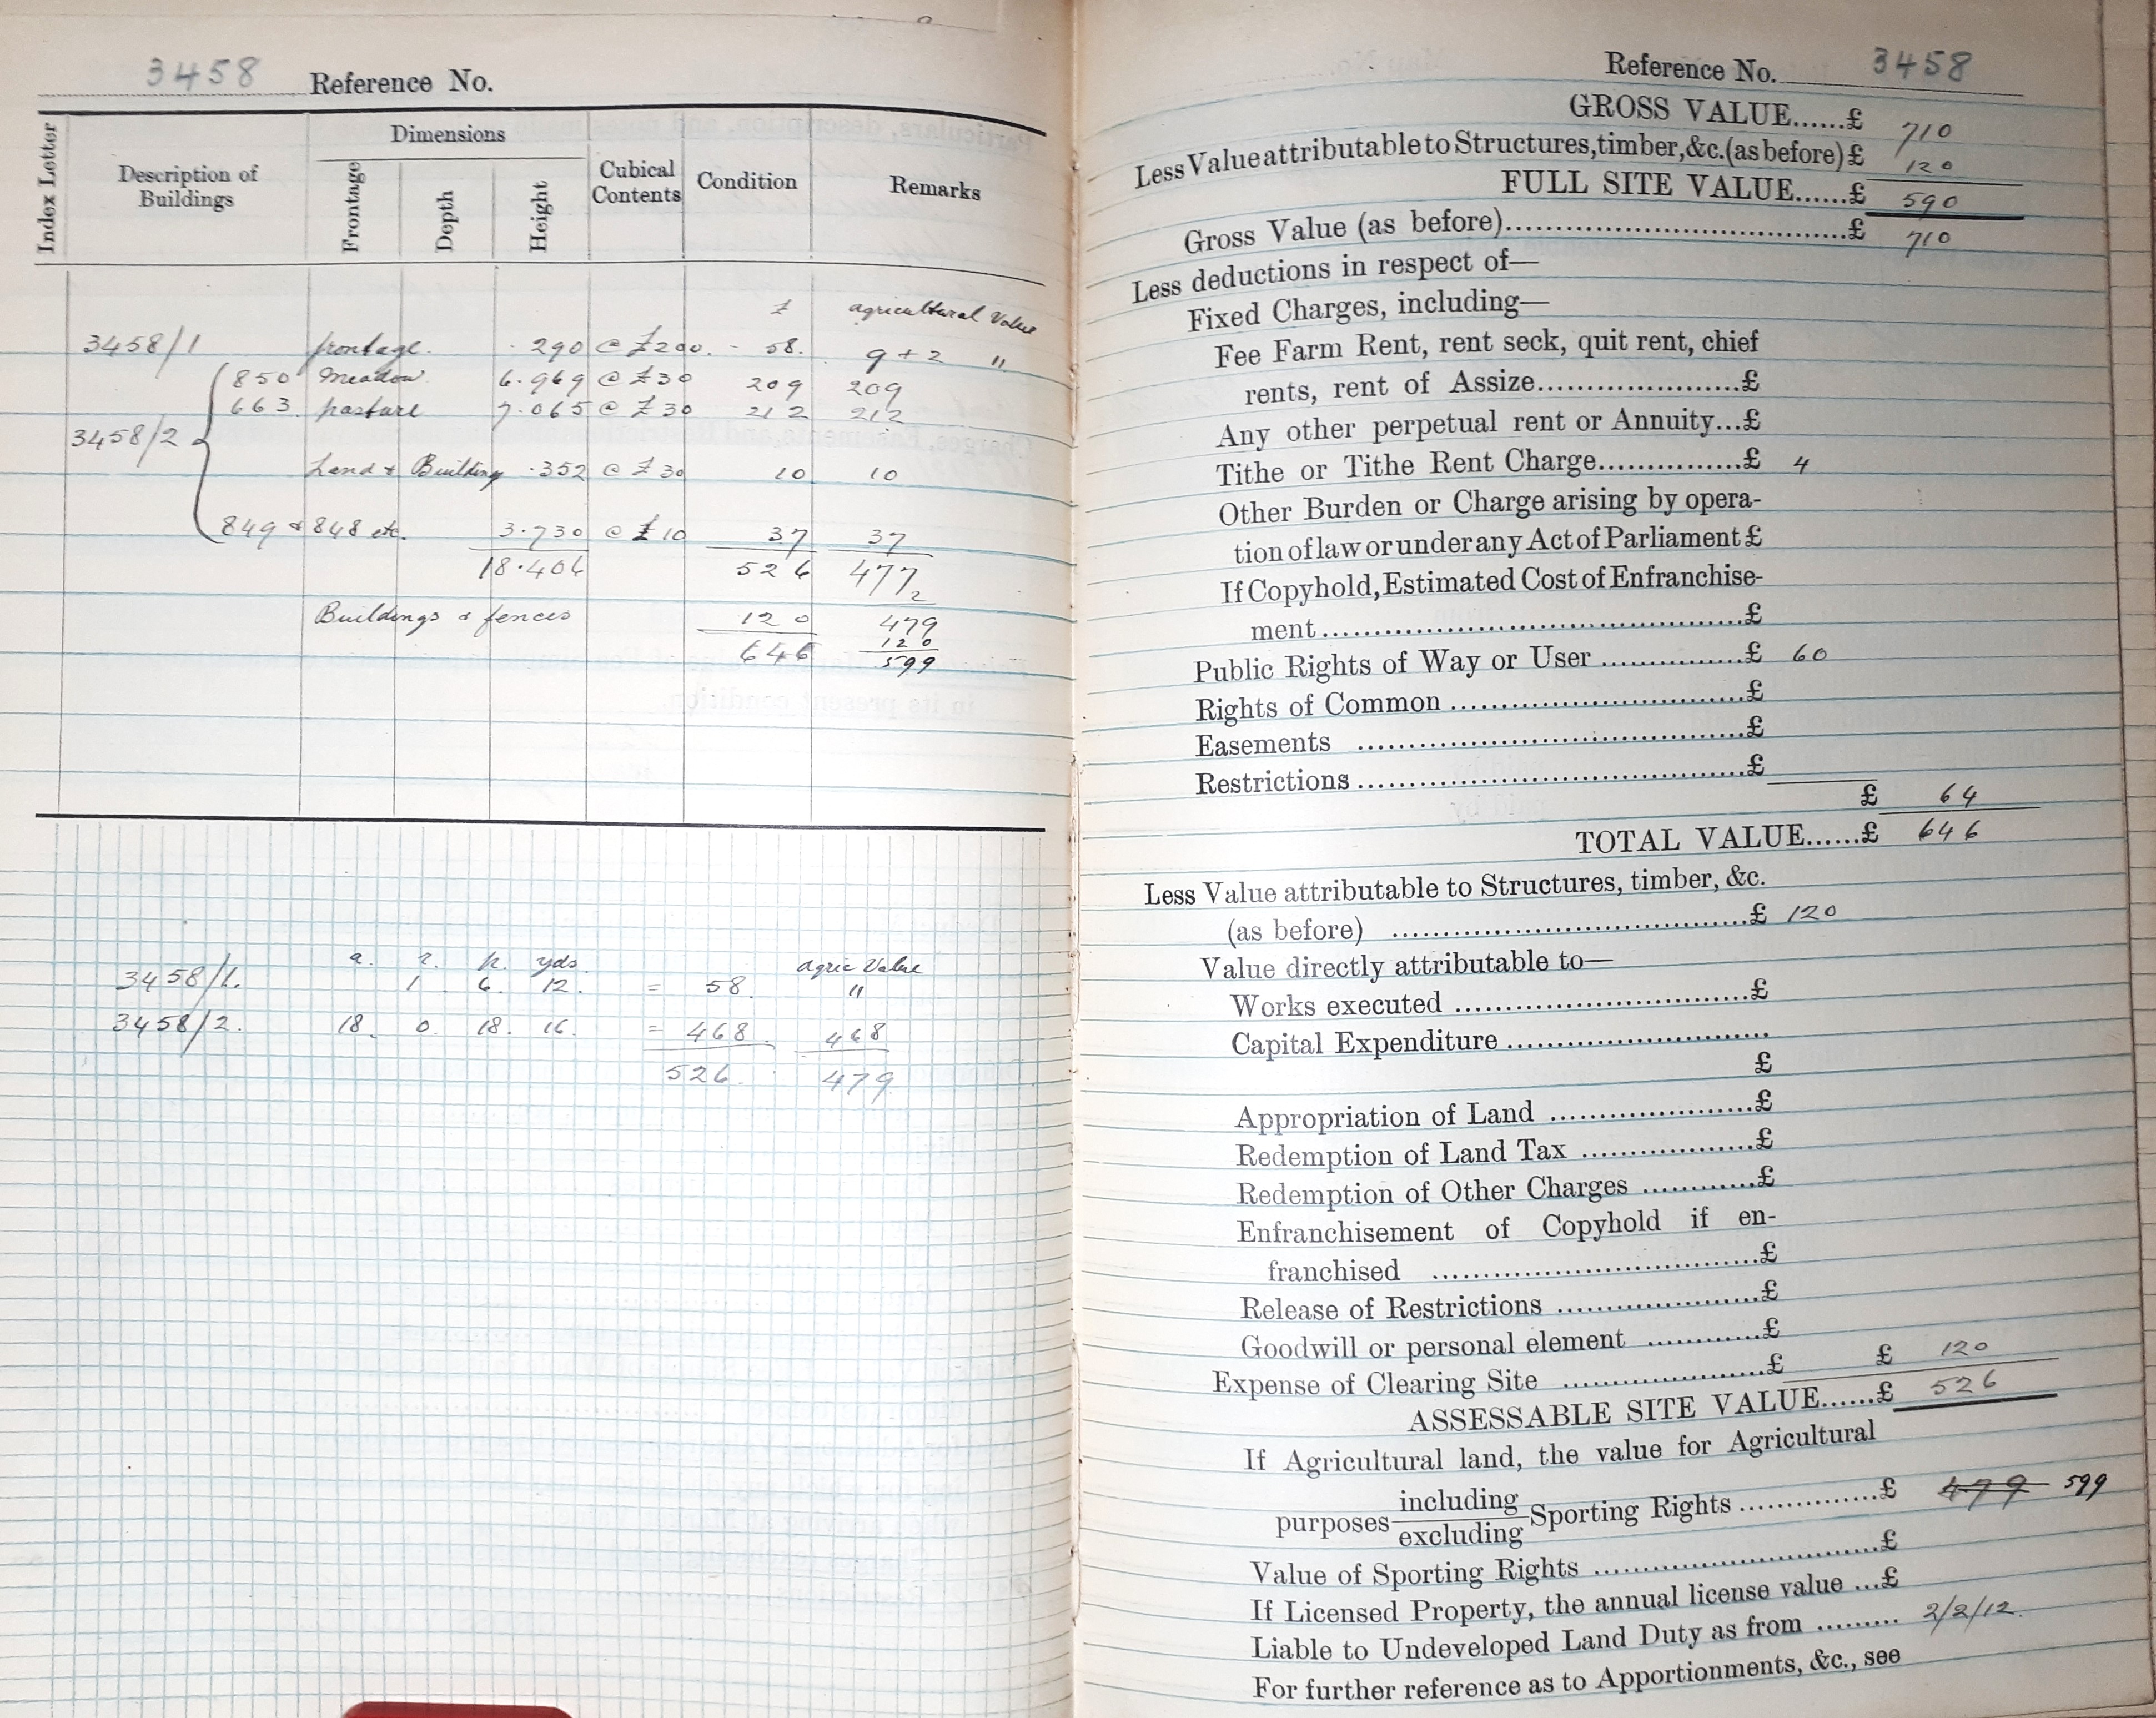 3458 Reference No.
Index Letter
Description of Buildings
Dimensions
Frontage
Depth
Height
Cubical Contents
Condition
Remarks
£ agricultural Value
3458/1 frontage. .290 @ £200. - 58. 9 + 2 "
850 Meadow 6.969 @ £30 209 209
663. pasture 7.065 @ £30 212 212
3458/2
Land & Building .352 @ £30 10 10
849 & 848 etc. 3.730 @ £10 37 37
18.406 526 477
2
Buildings & fences 120 479
120
646 599
a. r. p. yds. agric Value
3458/1. 1 6. 12. = 58. "
3458/2. 18. 0. 18. 16. = 468. 468
526. 479
Reference No. 3458
GROSS VALUE......£ 710
Less Value attributable to Structures, timber, &c. (as before) £ 120
FULL SITE VALUE......£ 590
Gross Value (as before)..........£ 710
Less deductions in respect of—
Fixed Charges, including—
Fee Farm Rent, rent seck, quit rent, chief
rents, rent of Assize..........£
Any other perpetual rent or Annuity...£
Tithe or Tithe Rent Charge..........£ 4
Other Burden or Charge arising by opera-
tion of law or under any Act of Parliament £
If Copyhold, Estimated Cost of Enfranchise-
ment..........£
Public Rights of Way or User ..........£ 60
Rights of Common ..........£
Easements ..........£
Restrictions..........£
£ 64
TOTAL VALUE......£ 646
Less Value attributable to Structures, timber, &c.
(as before) ..........£ 120
Value directly attributable to—
Works executed ..........£
Capital Expenditure ..........
£
Appropriation of Land ..........£
Redemption of Land Tax ..........£
Redemption of Other Charges ..........£
Enfranchisement of Copyhold if en-
franchised ..........£
Release of Restrictions ..........£
Goodwill or personal element ..........£
Expense of Clearing Site ..........£ £ 120
ASSESSABLE SITE VALUE......£ 526
If Agricultural land, the value for Agricultural
purposes including/excluding Sporting Rights..........£ 479 599
Value of Sporting Rights ..........£
If Licensed Property, the annual license value ...£
Liable to Undeveloped Land Duty as from ......... 2/2/12.
For further reference as to Apportionments, &c., see